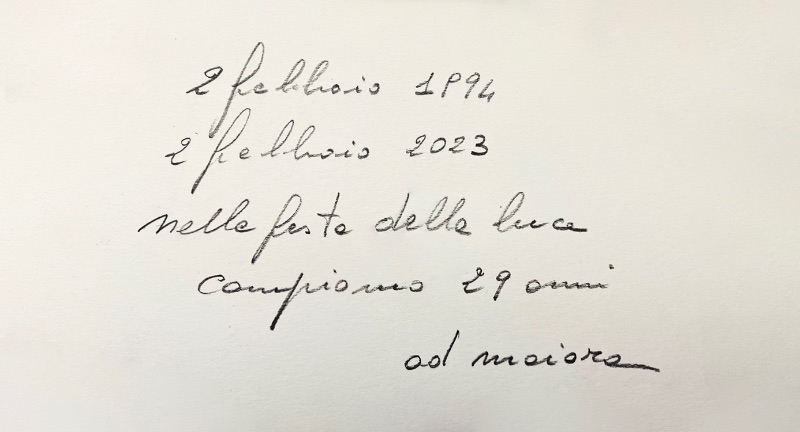 2 febbraio 1994
2 febbraio 2023
nella festa della luce
compiamo 29 anni
ad maiora